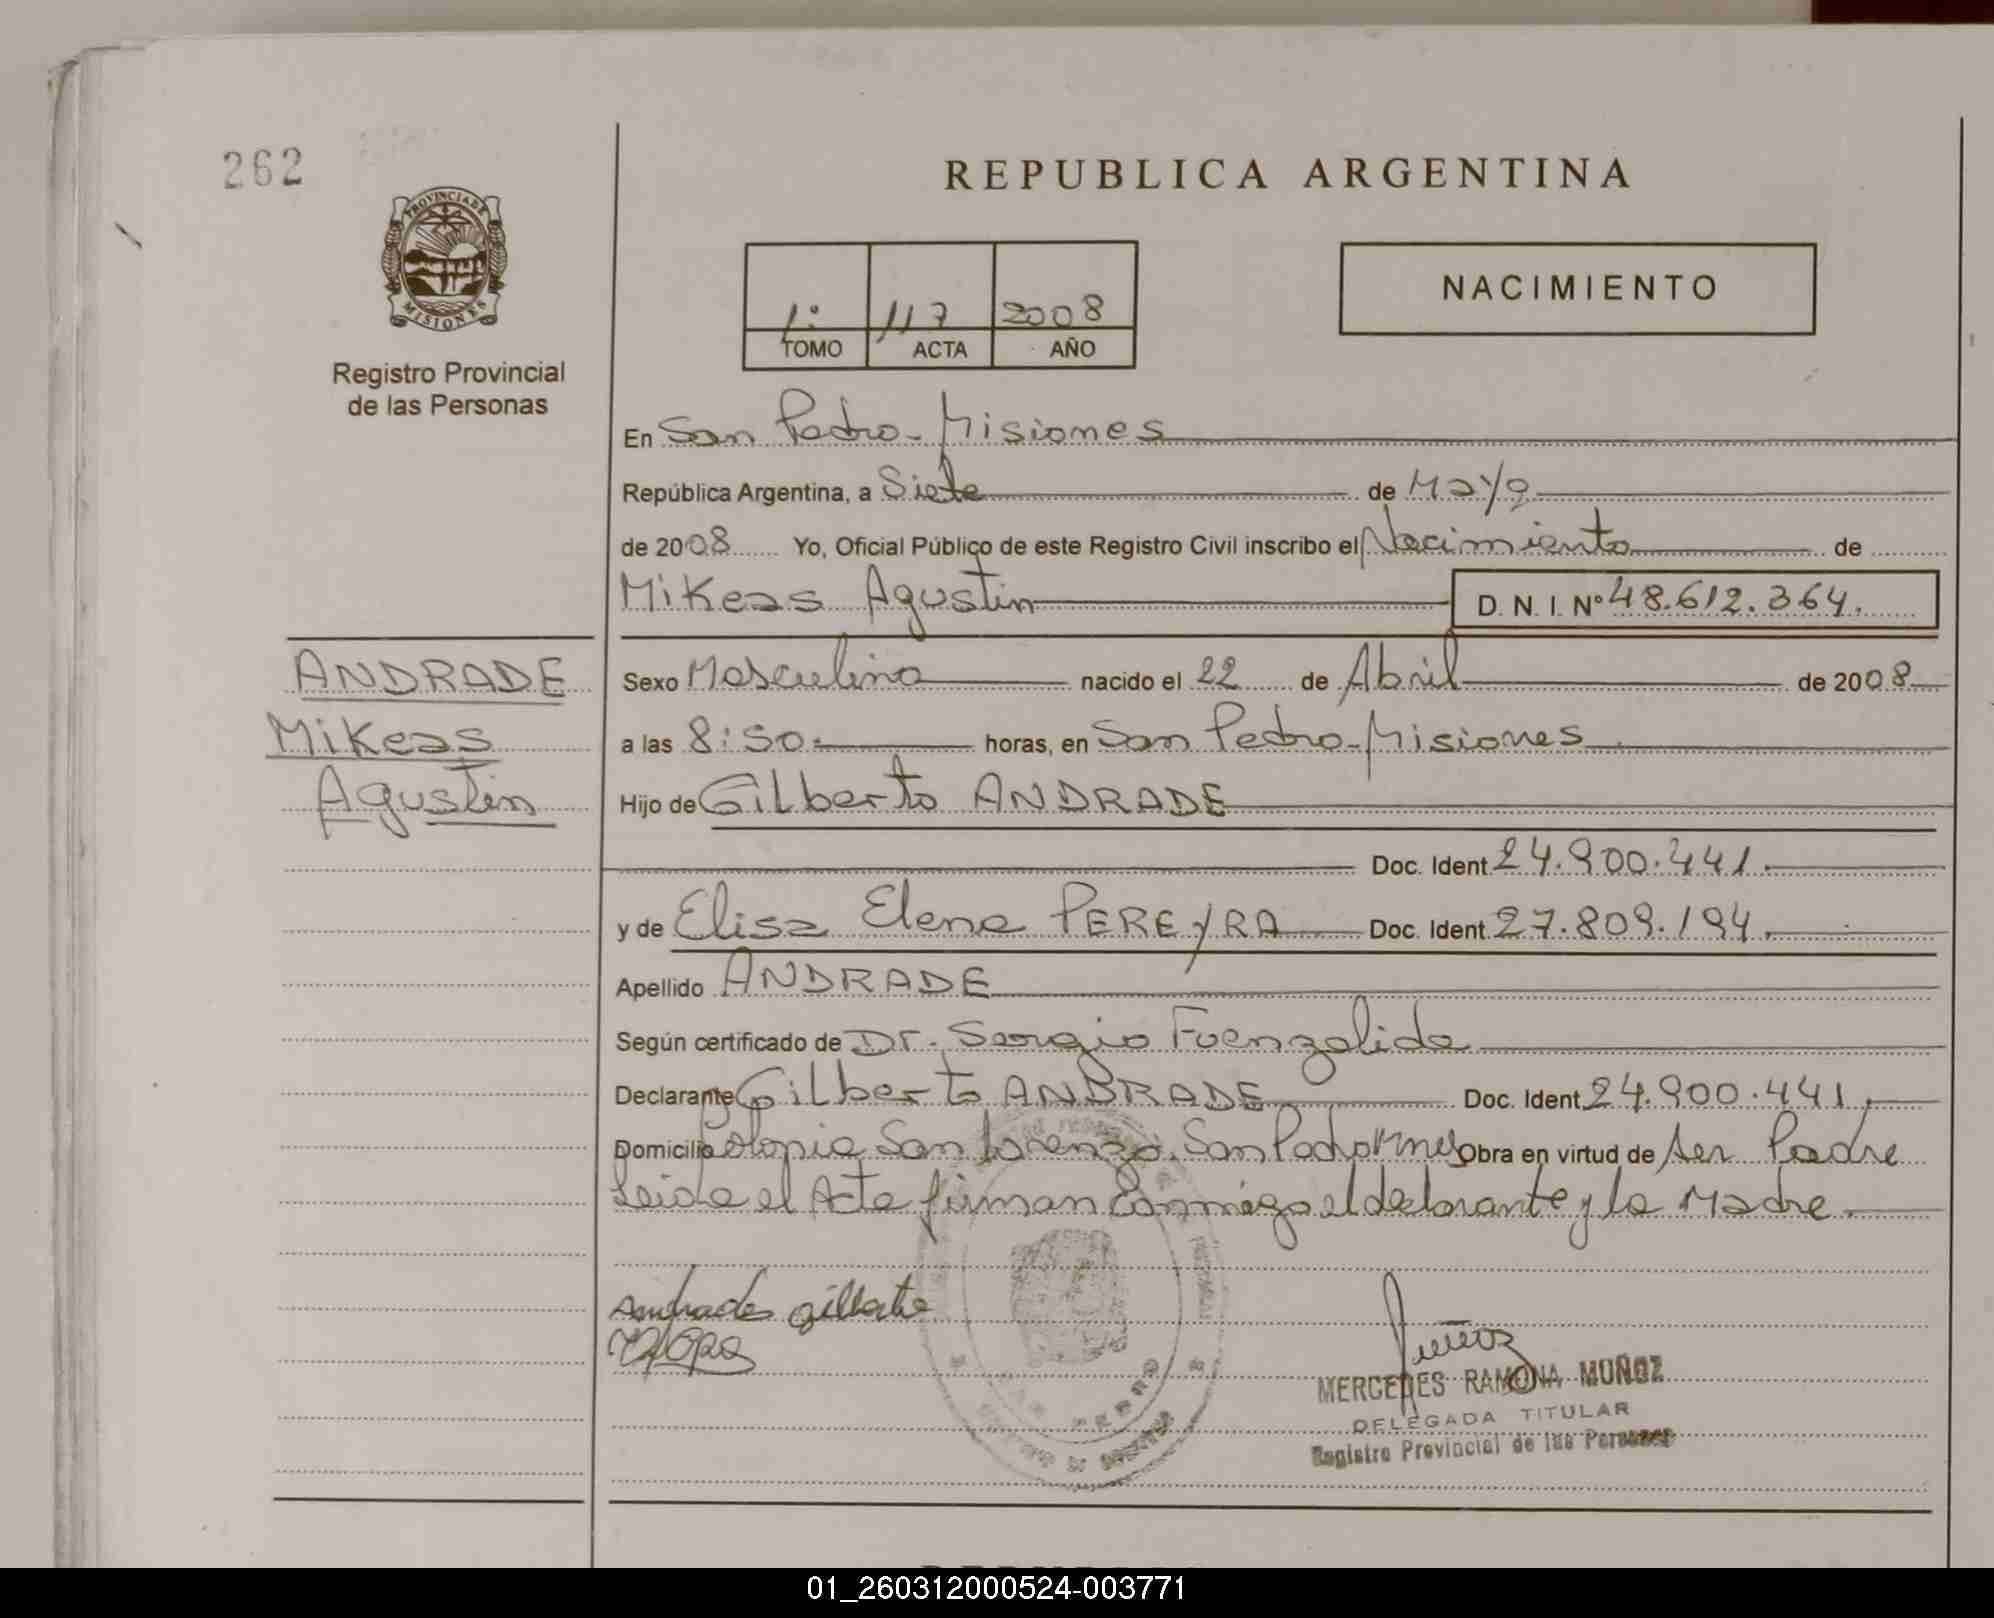 262
PROVINCIA DE
MISIONES
Registro Provincial
de las Personas
REPUBLICA ARGENTINA
1º 117 2008
TOMO ACTA AÑO
NACIMIENTO
En San Pedro - Misiones
República Argentina, a Siete de Mayo
de 2008 Yo, Oficial Público de este Registro Civil inscribo el Nacimiento de
Mikeas Agustin D. N. I. Nº 48.612.364.
ANDRADE
Mikeas
Agustin
Sexo Masculino nacido el 22 de Abril de 2008
a las 8:50 horas, en San Pedro - Misiones
Hijo de Gilberto ANDRADE
Doc. Ident. 24.900.441.
y de Elisa Elena PEREYRA Doc. Ident. 27.809.194.
Apellido ANDRADE
Según certificado de Dr. Sergio Fuenzalida
Declarante Gilberto ANDRADE Doc. Ident. 24.900.441.
Domicilio Colonia San Lorenzo, San Pedro Mnes Obra en virtud de ser Padre
Leida el Acta firman conmigo el declarante y la Madre.
Andrade gilberto
Muñoz
MERCEDES RAMONA MUÑOZ
DELEGADA TITULAR
Registro Provincial de las Personas
01_260312000524-003771